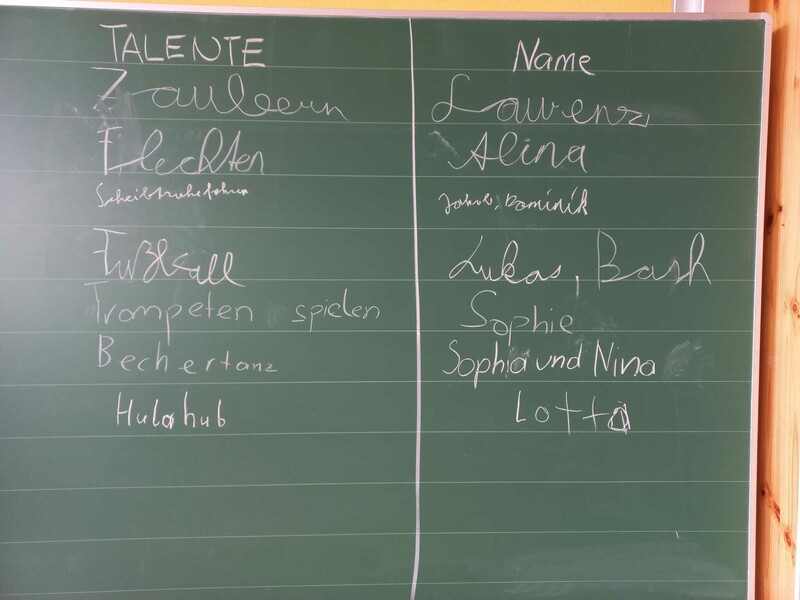 TALENTE Name
Zaubern Laurenz
Flechten Alina
Scheibtruhefahren Jakob, Dominik
Fußball Lukas, Bash
Trompeten spielen Sophie
Bechertanz Sophia und Nina
Hulahub Lotta